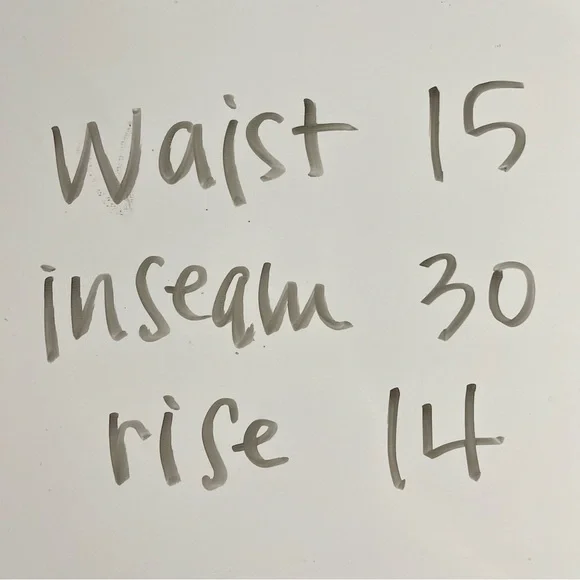 Waist 15
inseam 30
rise 14